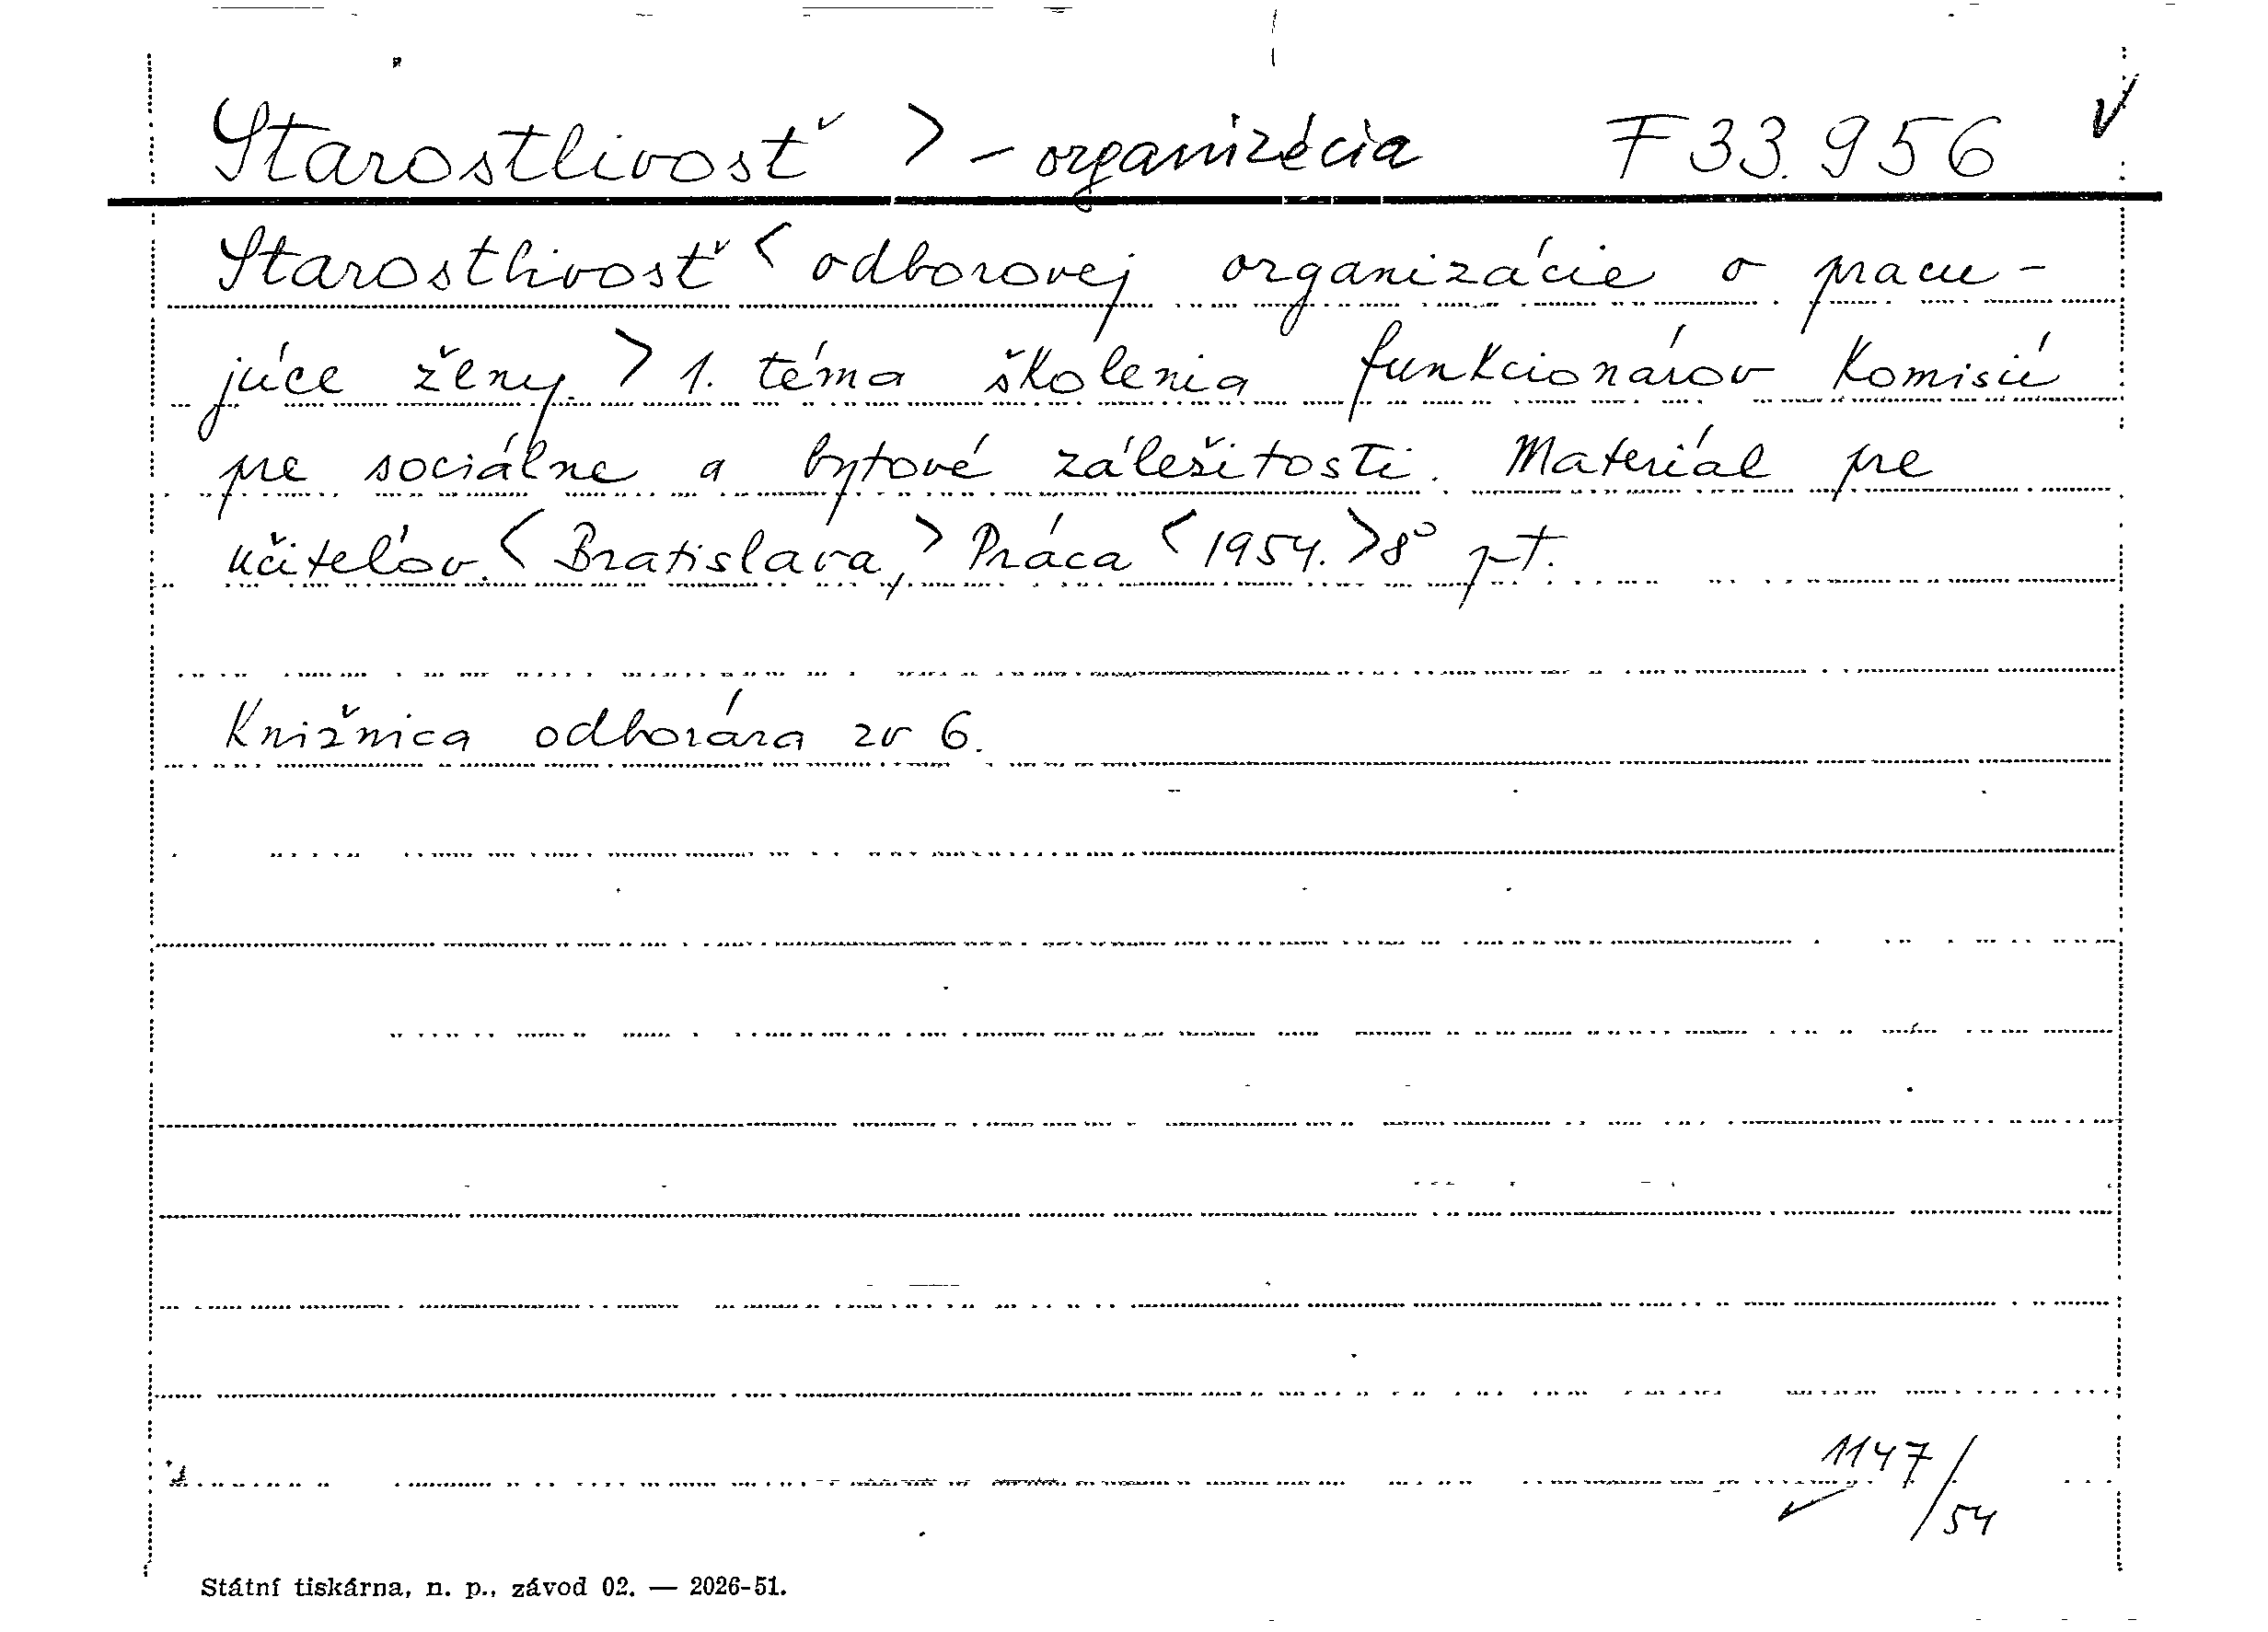 Starostlivosť > - organizécia F 33.956
Starostlivosť < odborovej organizácie o pracu-
júce ženy. > 1. téma školenia funkcionárov Komisií
pre sociálne a bytové záležitosti. Materiál pre
učiteľov. < Bratislava, > Práca < 1954. > 8° pt.
Knižnica odborára zv 6.
1147/54
Státní tiskárna, n. p., závod 02. — 2026-51.